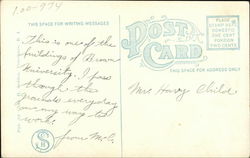 1.00-974
THIS SPACE FOR WRITING MESSAGES
POST
CARD
THIS SPACE FOR ADDRESS ONLY
PLACE
STAMP HERE
DOMESTIC
ONE CENT
FOREIGN
TWO CENTS
This is one of the
buildings of Brown
University. I pass
though the
grounds everyday
on my way to
work.
from
Mrs Child